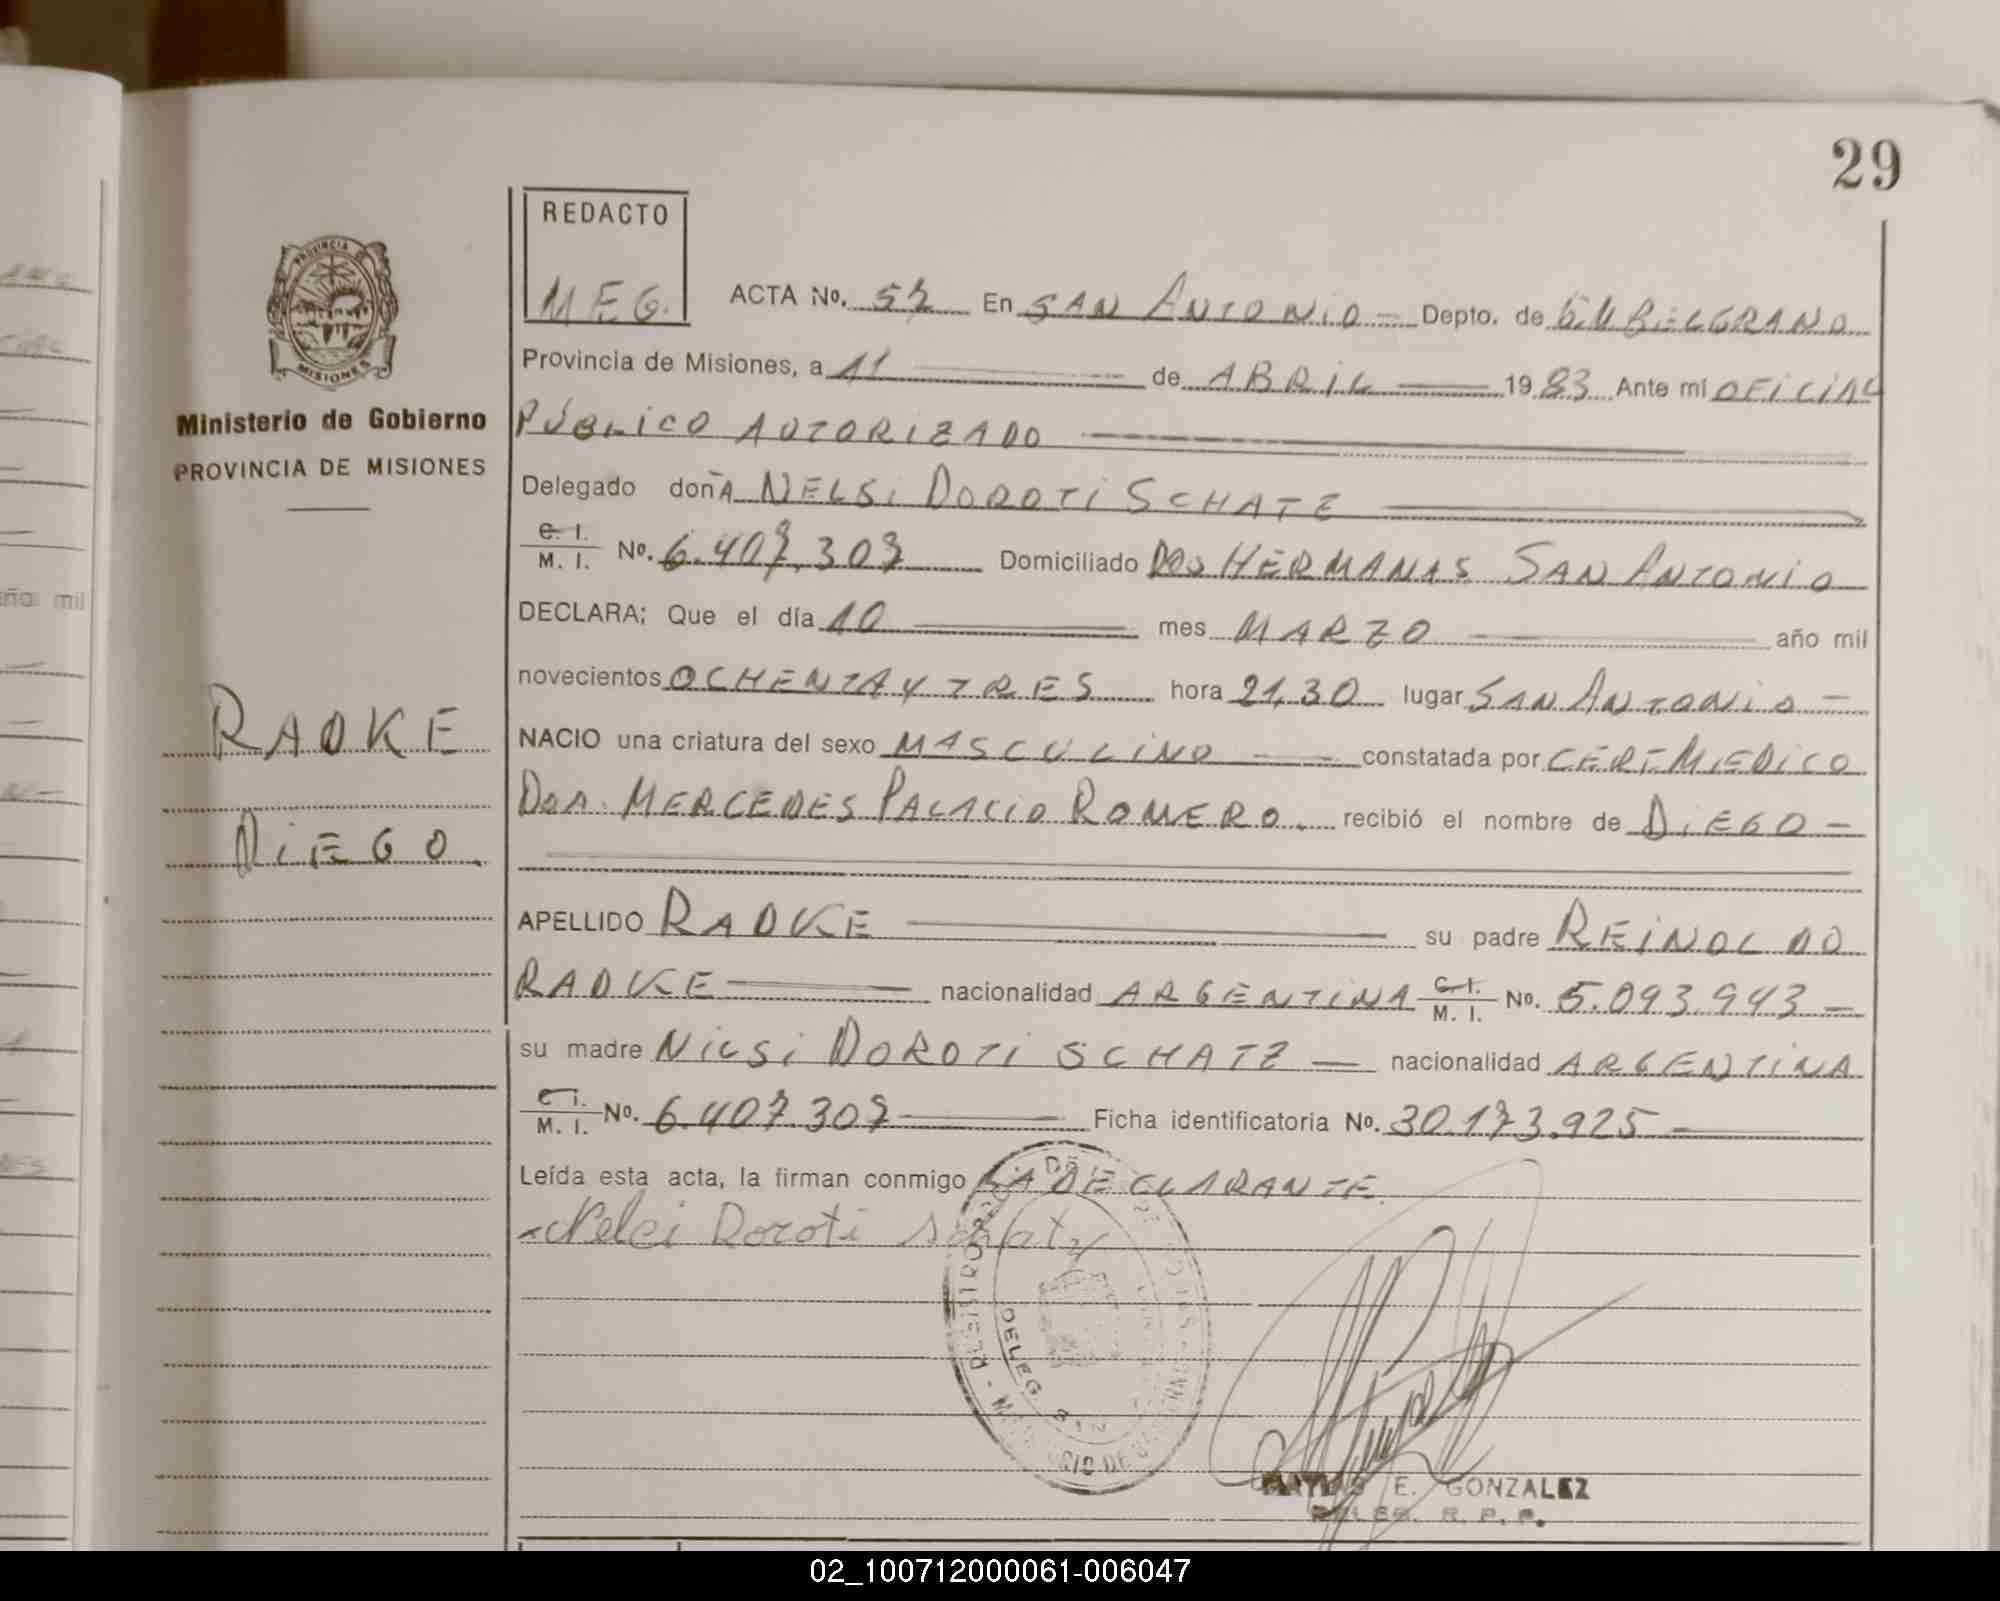 29
REDACTO
M E G.
ACTA No. 57 En SAN ANTONIO Depto. de G.M BELGRANO
Provincia de Misiones, a 11 de ABRIL 1983 Ante mí OFICIAL
PÚBLICO AUTORIZADO
Delegado doñA NELSI DOROTI SCHATZ
C. I. M. I. No. 6.407.307 Domiciliado DOS HERMANAS SAN ANTONIO
DECLARA; Que el día 10 mes MARZO año mil
novecientos OCHENTA Y TRES hora 21,30 lugar SAN ANTONIO
NACIO una criatura del sexo MASCULINO constatada por CERT. MEDICO
DRA. MERCEDES PALACIO ROMERO. recibió el nombre de DIEGO
APELLIDO RADKE su padre REINOLDO
RADKE nacionalidad ARGENTINA C. I. M. I. No. 5.093.943
su madre NELSI DOROTI SCHATZ nacionalidad ARGENTINA
C. I. M. I. No. 6.407.307 Ficha identificatoria No. 30.173.925
Leída esta acta, la firman conmigo LA DECLARANTE.
Nelci Doroti Schatz
E. GONZALEZ
DELEG. R. P. P.
PROVINCIA DE
MISIONES
Ministerio de Gobierno
PROVINCIA DE MISIONES
RADKE
DIEGO.
año mil
DELEG.
02_100712000061-006047